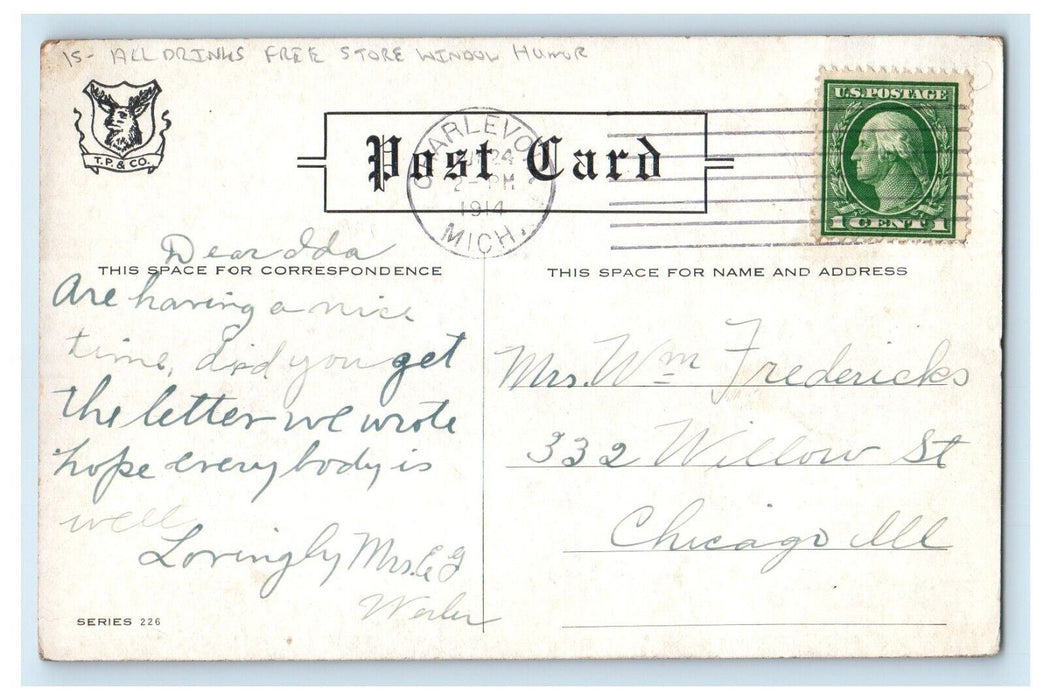 15- ALL DRINKS FREE STORE WINDOW HUMOR
T.P. & CO.
Post Card
CHARLEVOIX
24
2-PM
1914
MICH.
U.S. POSTAGE
1 CENT 1
Dear Ida
THIS SPACE FOR CORRESPONDENCE
Are having a nice
time, did you get
the letter we wrote
hope everybody is
well
Lovingly Mrs.
SERIES 226
THIS SPACE FOR NAME AND ADDRESS
Mrs. Wm Fredericks
332 Willow St
Chicago Ill